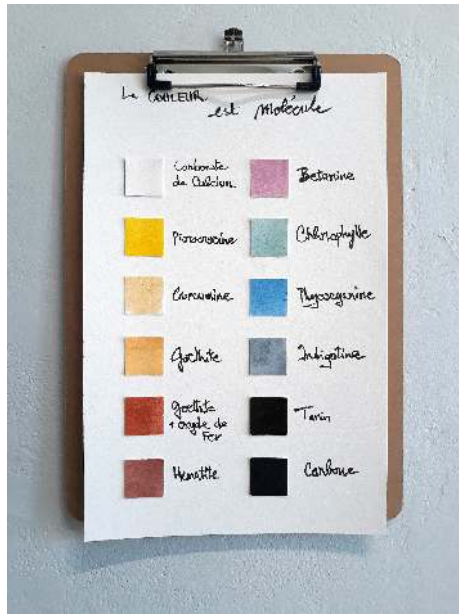 La COULEUR
est Molécule
Carbonate
de Calcium
Curcumine
Goethite
Goethite
+ oxyde de
Fer
Hématite
Betanine
Chlorophylle
Phycocyanine
Indigotine
Tanin
Carbone